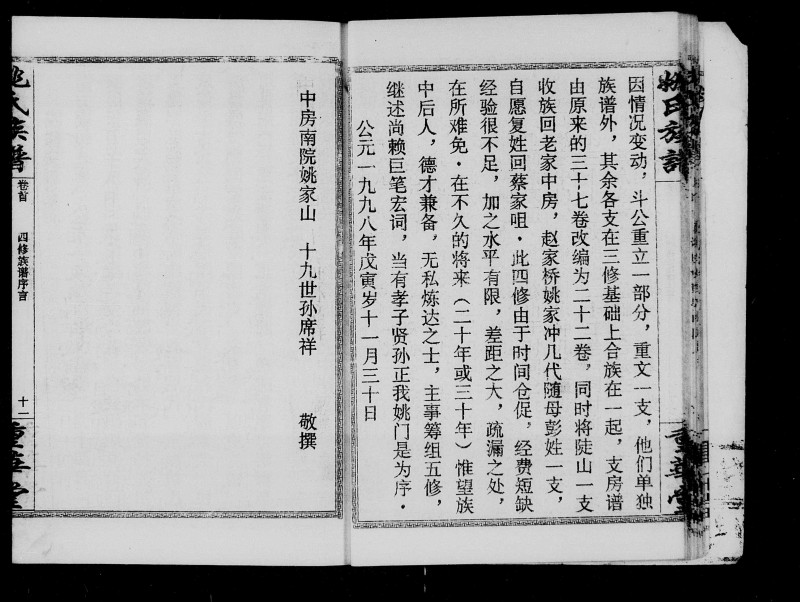 姚氏族谱
重华堂
因情况变动，斗公重立一部分，重文一支，他们单独
族谱外，其余各支在三修基础上合族在一起，支房谱
由原来的三十七卷改编为二十二卷，同时将陡山一支
收族回老家中房，赵家桥姚家冲几代随母彭姓一支，
自愿复姓回蔡家咀．此四修由于时间仓促，经费短缺
经验很不足，加之水平有限，差距之大，疏漏之处，
在所难免．在不久的将来（二十年或三十年）惟望族
中后人，德才兼备，无私炼达之士，主事筹组五修，
继述尚赖巨笔宏词，当有孝子贤孙正我姚门是为序．
公元一九九八年戊寅岁十一月三十日
中房南院姚家山 十九世孙席祥 敬撰
姚氏族谱
卷首
四修族谱序言
十二
重华堂